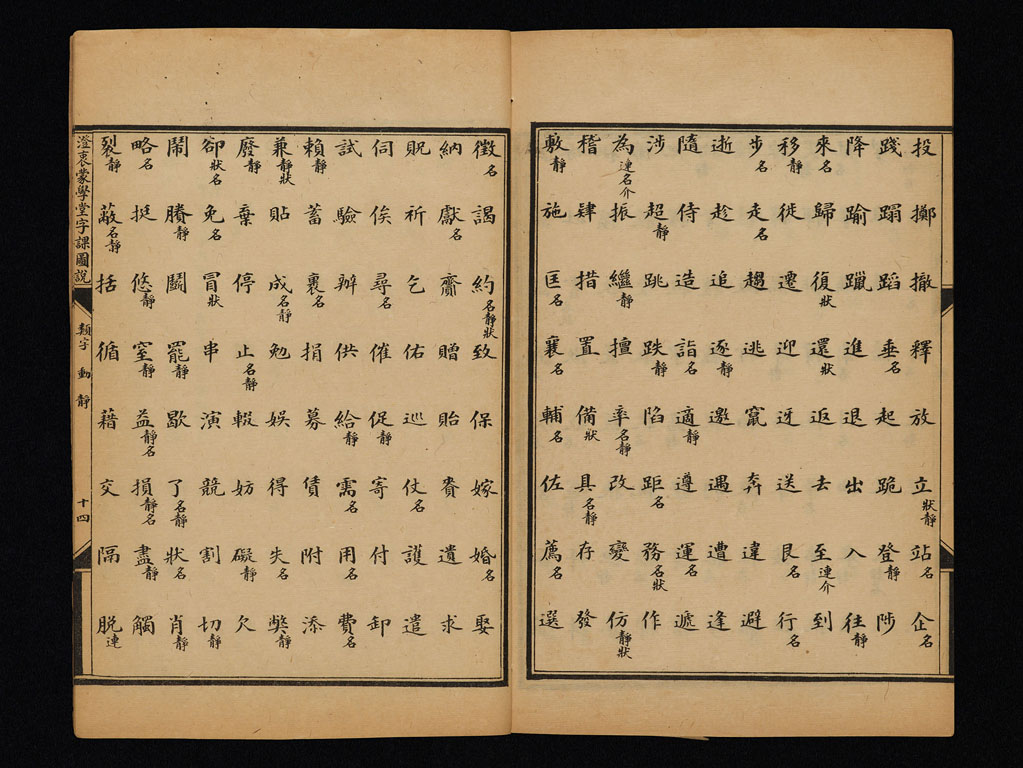 投擲撤釋放立狀靜站名企名
踐蹋蹈垂名起跪登靜陟
降踰躐進退出入往靜
來名歸復狀還狀返去至連介到
移靜徙遷迎迓送艮名行名
步名走名趨逃竄奔違避
逝趁追逐靜邀遇遭逢
隨侍造詣名適靜遵運名遞
涉超靜跳跌靜陷距名務名狀作
為連名介振繼靜擅率名靜改變仿靜狀
稽肄措置備狀具名靜存發
敷靜施匡名襄名輔名佐薦名選
徵名謁約名靜狀致保嫁婚名娶
納獻名齎贈貽賚遺求
貺祈乞佑巡仗名護遣
伺俟尋名催促靜寄付卸
試驗辦供給靜需名用名費名
賴靜蓄裹名捐募賃附添
兼靜狀貼成名靜勉娛得失名弊靜
廢靜棄停止名靜輟妨礙靜欠
卻狀名免名冒狀串演競割切靜
鬧賸靜鬭罷靜歇了名靜狀名肖靜
略名挺悠靜窒靜益靜名損靜名盡靜觸
裂靜蔽名靜括循藉交隔脫連
澄衷蒙學堂字課圖說
類字 動 靜
十四